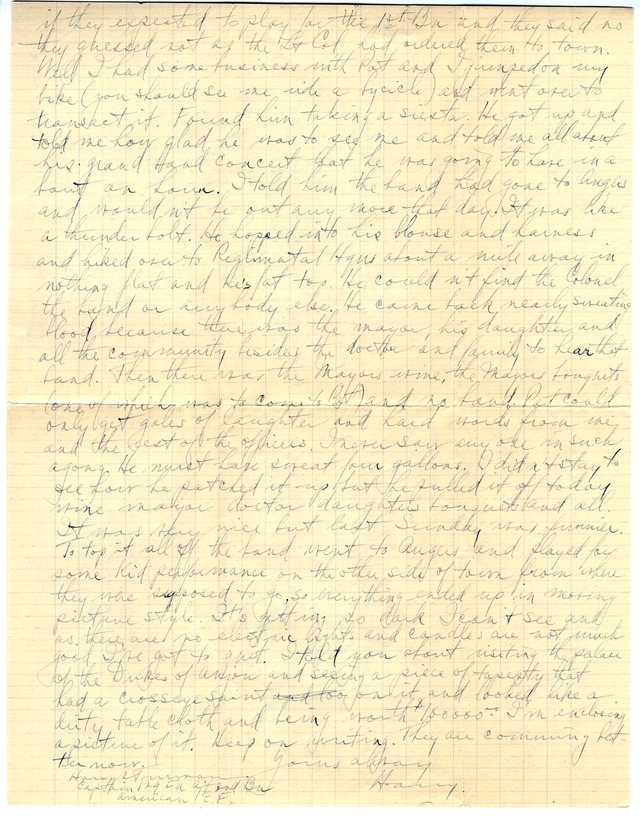 if they expected to play for the 1st Bn and they said no
they guessed not as the Lt Col had ordered them to town.
Well I had some business with Pat and I jumped on my
bike (you should see me ride a bycicle) and went over to
transact it. Found him taking a siesta. He got up and
told me how glad he was to see me and told me all about
his grand band concert that he was going to have in a
bout an hour. I told him the band had gone to Angers
and wouldn't be out any more that day. It was like
a thunder bolt. He hopped into his blouse and harness
and hiked over to Regimental Hqrs about a mile away in
nothing flat and his at top. He could n't find the Colonel
the band or any body else. He came back nearly sweating
blood because there was the mayor, his daughter and
all the community besides the doctor and family to hear that
band. Then there was the Mayors wine, the Mayors bouquets
(one of which was to come to Pat) and no band. Pat could
only get gales of laughter and hard words from me
and the rest of the officers. I never saw any one in such
agony. He must have sweat four gallons. I didn't stay to
see how he patched it up but he pulled it off today
wine mayor doctor daughter bouquets and all.
It was very nice but last Sunday was funnier.
To top it all off the band went to Angers and played for
some kid performance on the other side of town from where
they was supposed to go, so everything ended up in moving
picture style. It's getting so dark I can't see and
as there are no electric lights and candles are not much
good I've got to quit. I told you about visiting the palace
of the Dukes of Anjou and seeing a piece of tapestry that
had a crosseye saint and too on it, and looked like a
dirty table cloth and being worth $100000.00 I'm enclosing
a picture of it. Keep on writing. They are comming bet-
ter now. Yours always
Harry S Truman Harry.
Captain 129 F.A.
American E.F.